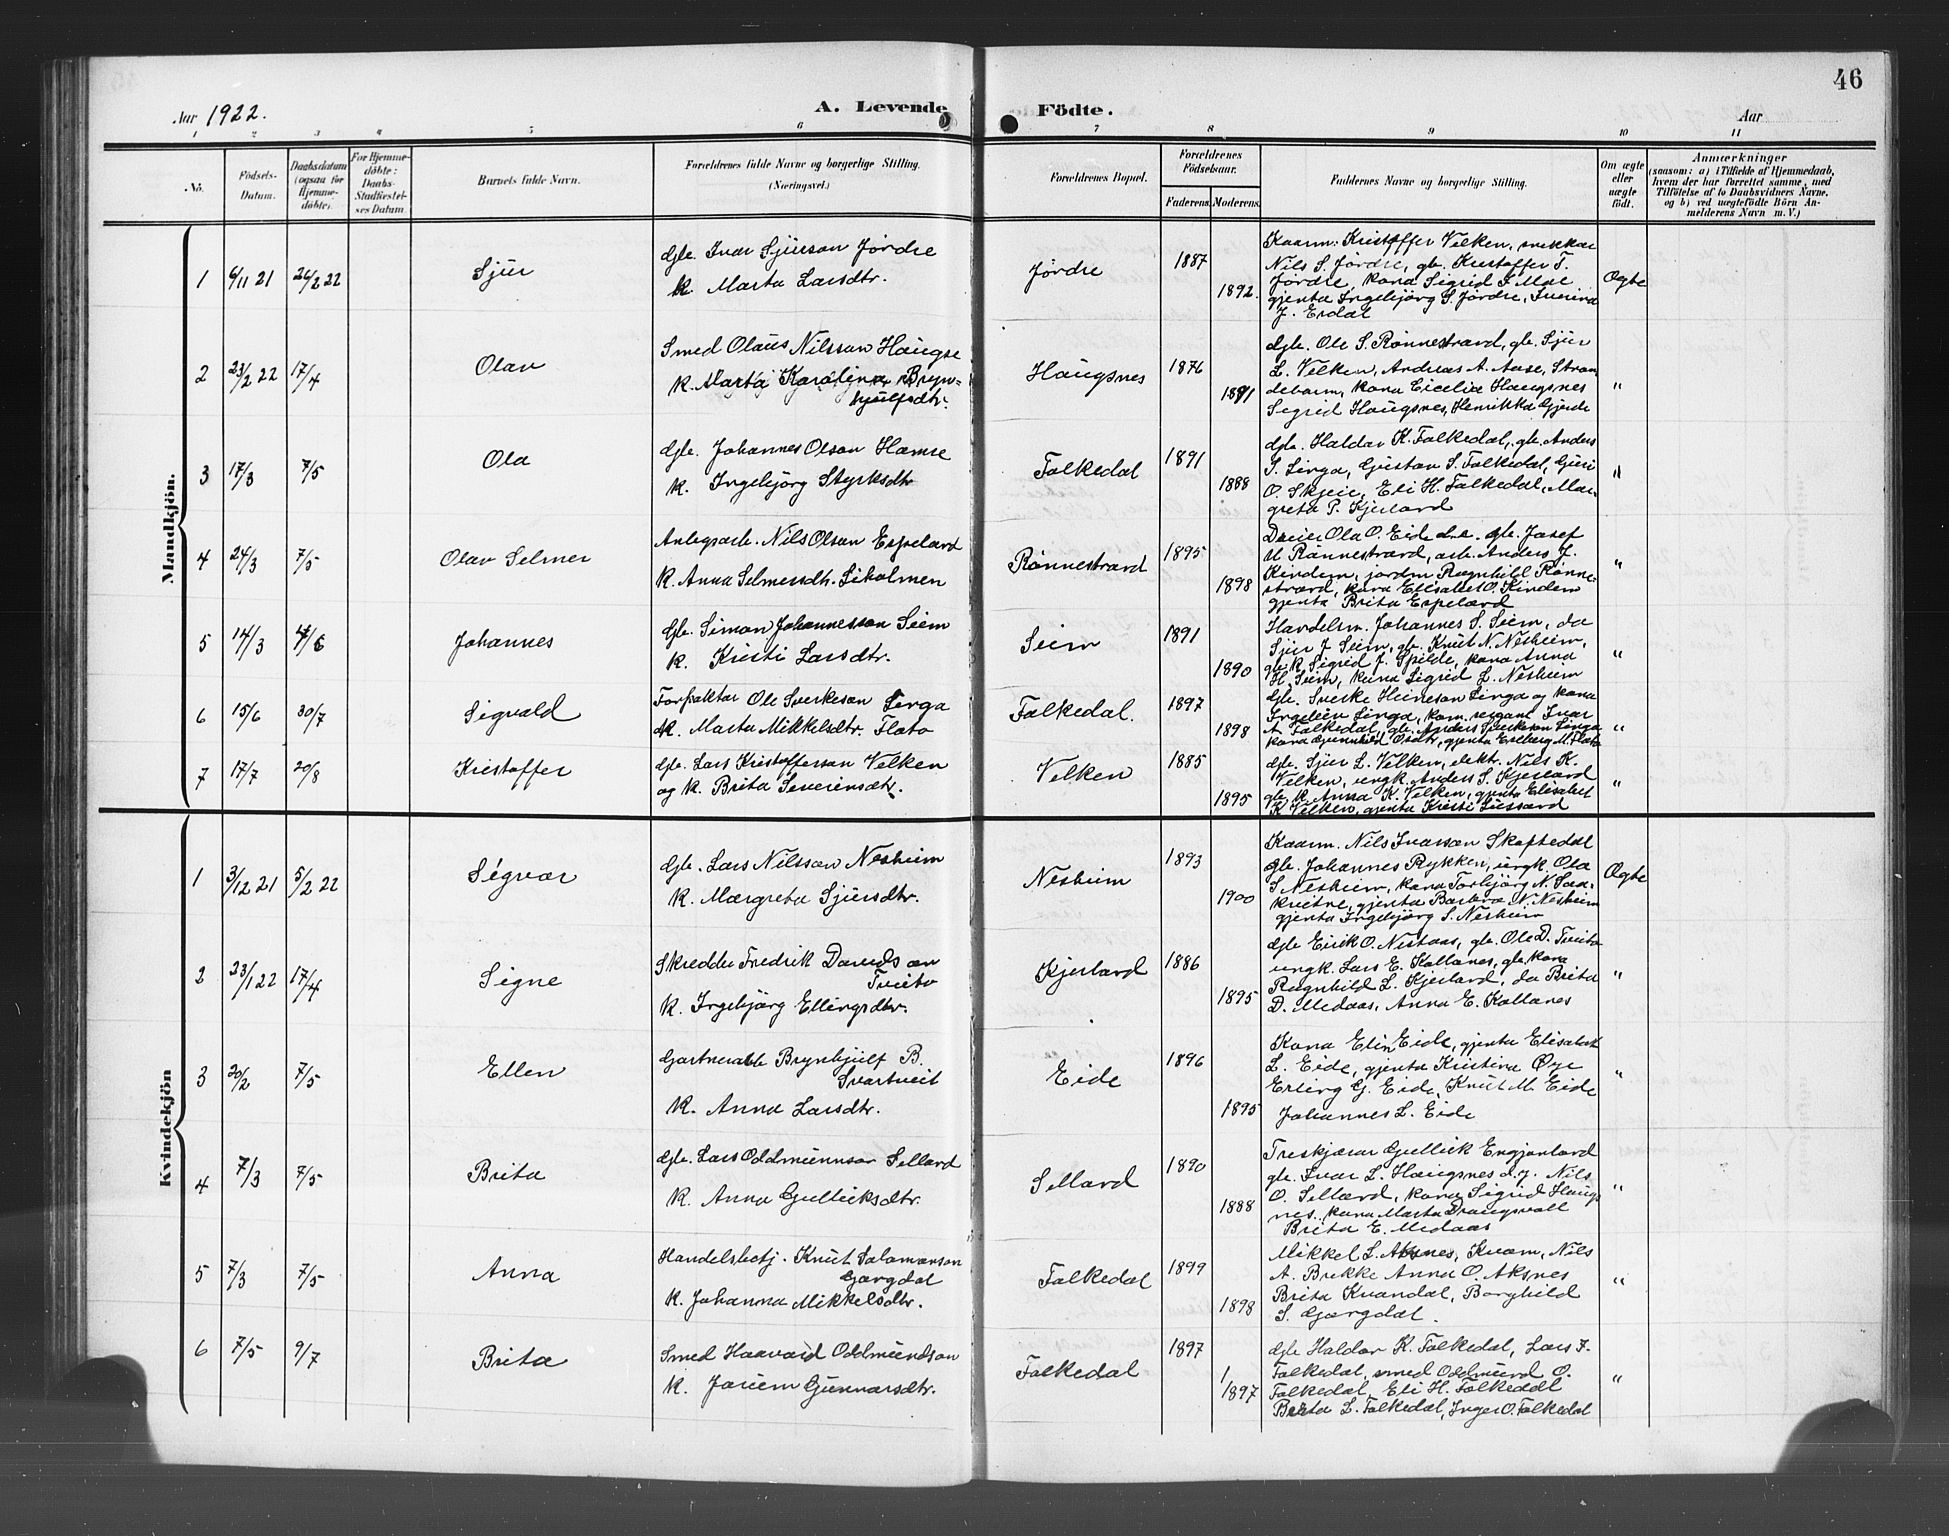 46
Aar 1922.
A. Levende Födte.
Aar
1 2 3 4 5 6 7 8 9 10 11
No.
Födsels-Datum.
Daabsdatum (ogsaa for Hjemme-döbte).
For Hjemme-döbte: Daabs-Stadfæstel-ses Datum
Barnets fulde Navn.
Forældrenes fulde Navne og borgerlige Stilling.
(Næringsvei.)
Forældrenes Bopæl.
Forældrenes Födselsaar.
Faderens. Moderens.
Faddernes Navne og borgerlige Stilling.
Om ægte eller uægte födt.
Anmærkninger
(saasom: a) i Tilfælde af Hjemmedaab,
hvem der har forrettet samme, med
Tilföielse af to Daabsvidners Navne.
og b) ved uægtefödte Börn An-
melderens Navn m. V.)
Mandkjön.
1 6/11 21 26/2 22 Sjur
Gbr. Ivar Sjursson Jørdre
K. Marta Larsdtr.
Jørdre 1887 1892.
Kaarm. Kristoffer Velken, snekkar
Nils S. Jørdre, gb. Kristoffer T.
Jørdre, kona Sigrid I. Mæl
gjenta Ingebjörg S. Jørdre, Iverina
J. Erdal
Ogte
2 23/2 22 17/4 Olav
Smed Olaus Nilsson Haugse
K. Marta Karolina Bryn-
hjulfsdtr.
Haugsnes 1876 1891
Gbr. Ole S. Rønnestrand, gb. Sjur
L. Velken, Andreas A. Aase, Stran
debarm, kona Cicelia Haugsnes
Sigrid Haugsnes, Henrikka Gjerde
"
3 17/3 7/5 Ola
Gbr. Johannes Olson Hamre
K. Ingebjörg Styrksdtr
Folkedal 1891 1888
Gbr. Haldor K. Folkedal, gb. Anders
S. Linga, Gustav S. Folkedal, Guri
O. Skjeie, Eli H. Folkedal, Mar-
greta P. Kjerland
"
4 24/3 7/5 Olav Selmer
Anlegsarb. Nils Olson Espeland
K. Anna Selmersdtr. Liholmen
Rønnestrand 1895 1898
Ola O. Eide gb. Josef
M Rønnestrand, arb. Anders J.
Kindem, jordm Ragnhild Rønne-
strand, kona Elisabet O. Kindem
gjenta Brita Espeland
"
5 14/3 4/6 Johannes
Gbr. Simon Johannesson Seim
K. Kristi Larsdtr.
Seim 1891 1890
Handelsm. Johannes S. Seim, do
Sjur J. Seim, gb. Knut N. Nesheim,
gb. k. Sigrid J. Spilde, kona Anna
H. Seim, kona Sigrid L. Nesheim
"
6 15/6 30/7 Sigvald
Forpaktar Ole Sverkeson Linga
K. Marta Mikkelsdtr. Flato
Folkedal. 1897 1898
Gbr. Sverke Heineson Linga og kona
Ingeleiv Linga, kom. Ivar
A. Folkedal, gb. Anders Sverkeson Linga
kona Gunnhild Osdtr, gjenta M. Flato
"
7 17/7 20/8 Kristoffer
Gbr. Lars Kristofferson Velken
og K. Brita Severinsdtr.
Velken 1885 1895
Gbr. Sjur L. Velken, elekt. Nils K.
Velken, ungk. Anders S. Kjerland
gb. k. Anna K. Velken, gjenta Elisabet
K. Velken, gjenta Kristi
"
Kvindekjön
1 3/12 21 5/2 22 Sigvor
Gbr. Lars Nilsson Nesheim
K. Margreta Sjursdtr.
Nesheim 1893 1900
Kaarm. Nils Ivarson Skaftedal
Gbr. Johannes Rykken, ungk. Ola
S Nesheim, kona Torbjörg N. Sæ-
kvitne, gjenta Barbra N. Nesheim
gjenta Ingebjörg S. Nesheim
Ogte
2 23/1 22 17/4 Signe
Skreddar Fredrik Davidson
Tveito
K. Ingebjörg Ellingsdtr.
Kjerland 1886 1895
Gbr Eirik O. Nestaas, gb. Ole D. Tveito
ungk. Lars E. Kollanes, gb. kona
Ragnhild L. Kjerland, do Brita
D. Medaas, Anna E. Kollanes
"
3 20/2 7/5 Ellen
Gartnerarb Brynhjulf B.
Svartveit
K. Anna Larsdtr.
Eide 1896 1895
Kona Elin Eide, gjenta Elisabet
L. Eide, gjenta Kristina Øye
Erling G. Eide, Knut M. Eide
Johannes L. Eide
"
4 7/3 7/5 Brita
Gbr. Lars Oddmunnson Selland
K. Anna Gulleiksdtr.
Selland 1890 1888
Treskjærar Gulleik Engjanlond
gb. Ivar L. Haugsnes d.y. Nils
O. Selland, kona Sigrid Haugs
nes, kona Marta Draugsvoll
Brita E. Medaas
"
5 7/3 7/5 Anna
Handelsbetj. Knut Salomonson
Gørgdal
K. Johanna Mikkelsdtr.
Folkedal 1899 1898
Mikkel L. Aksnes, Kvam, Nils
A. Brekke Anna O. Aksnes
Brita Kvandal, Borghild
S. Gørgdal.
"
6 7/5 9/7 Brita
Smed Haavard Oddmundson
K. Joruen Gunnarsdtr.
Folkedal 1897 1897
Gbr Haldor K. Folkedal, Lars I.
Folkedal, smed Oddmund O.
Folkedal, Eli H. Folkedal
Brita L. Folkedal, Inger O. Folkedal
"